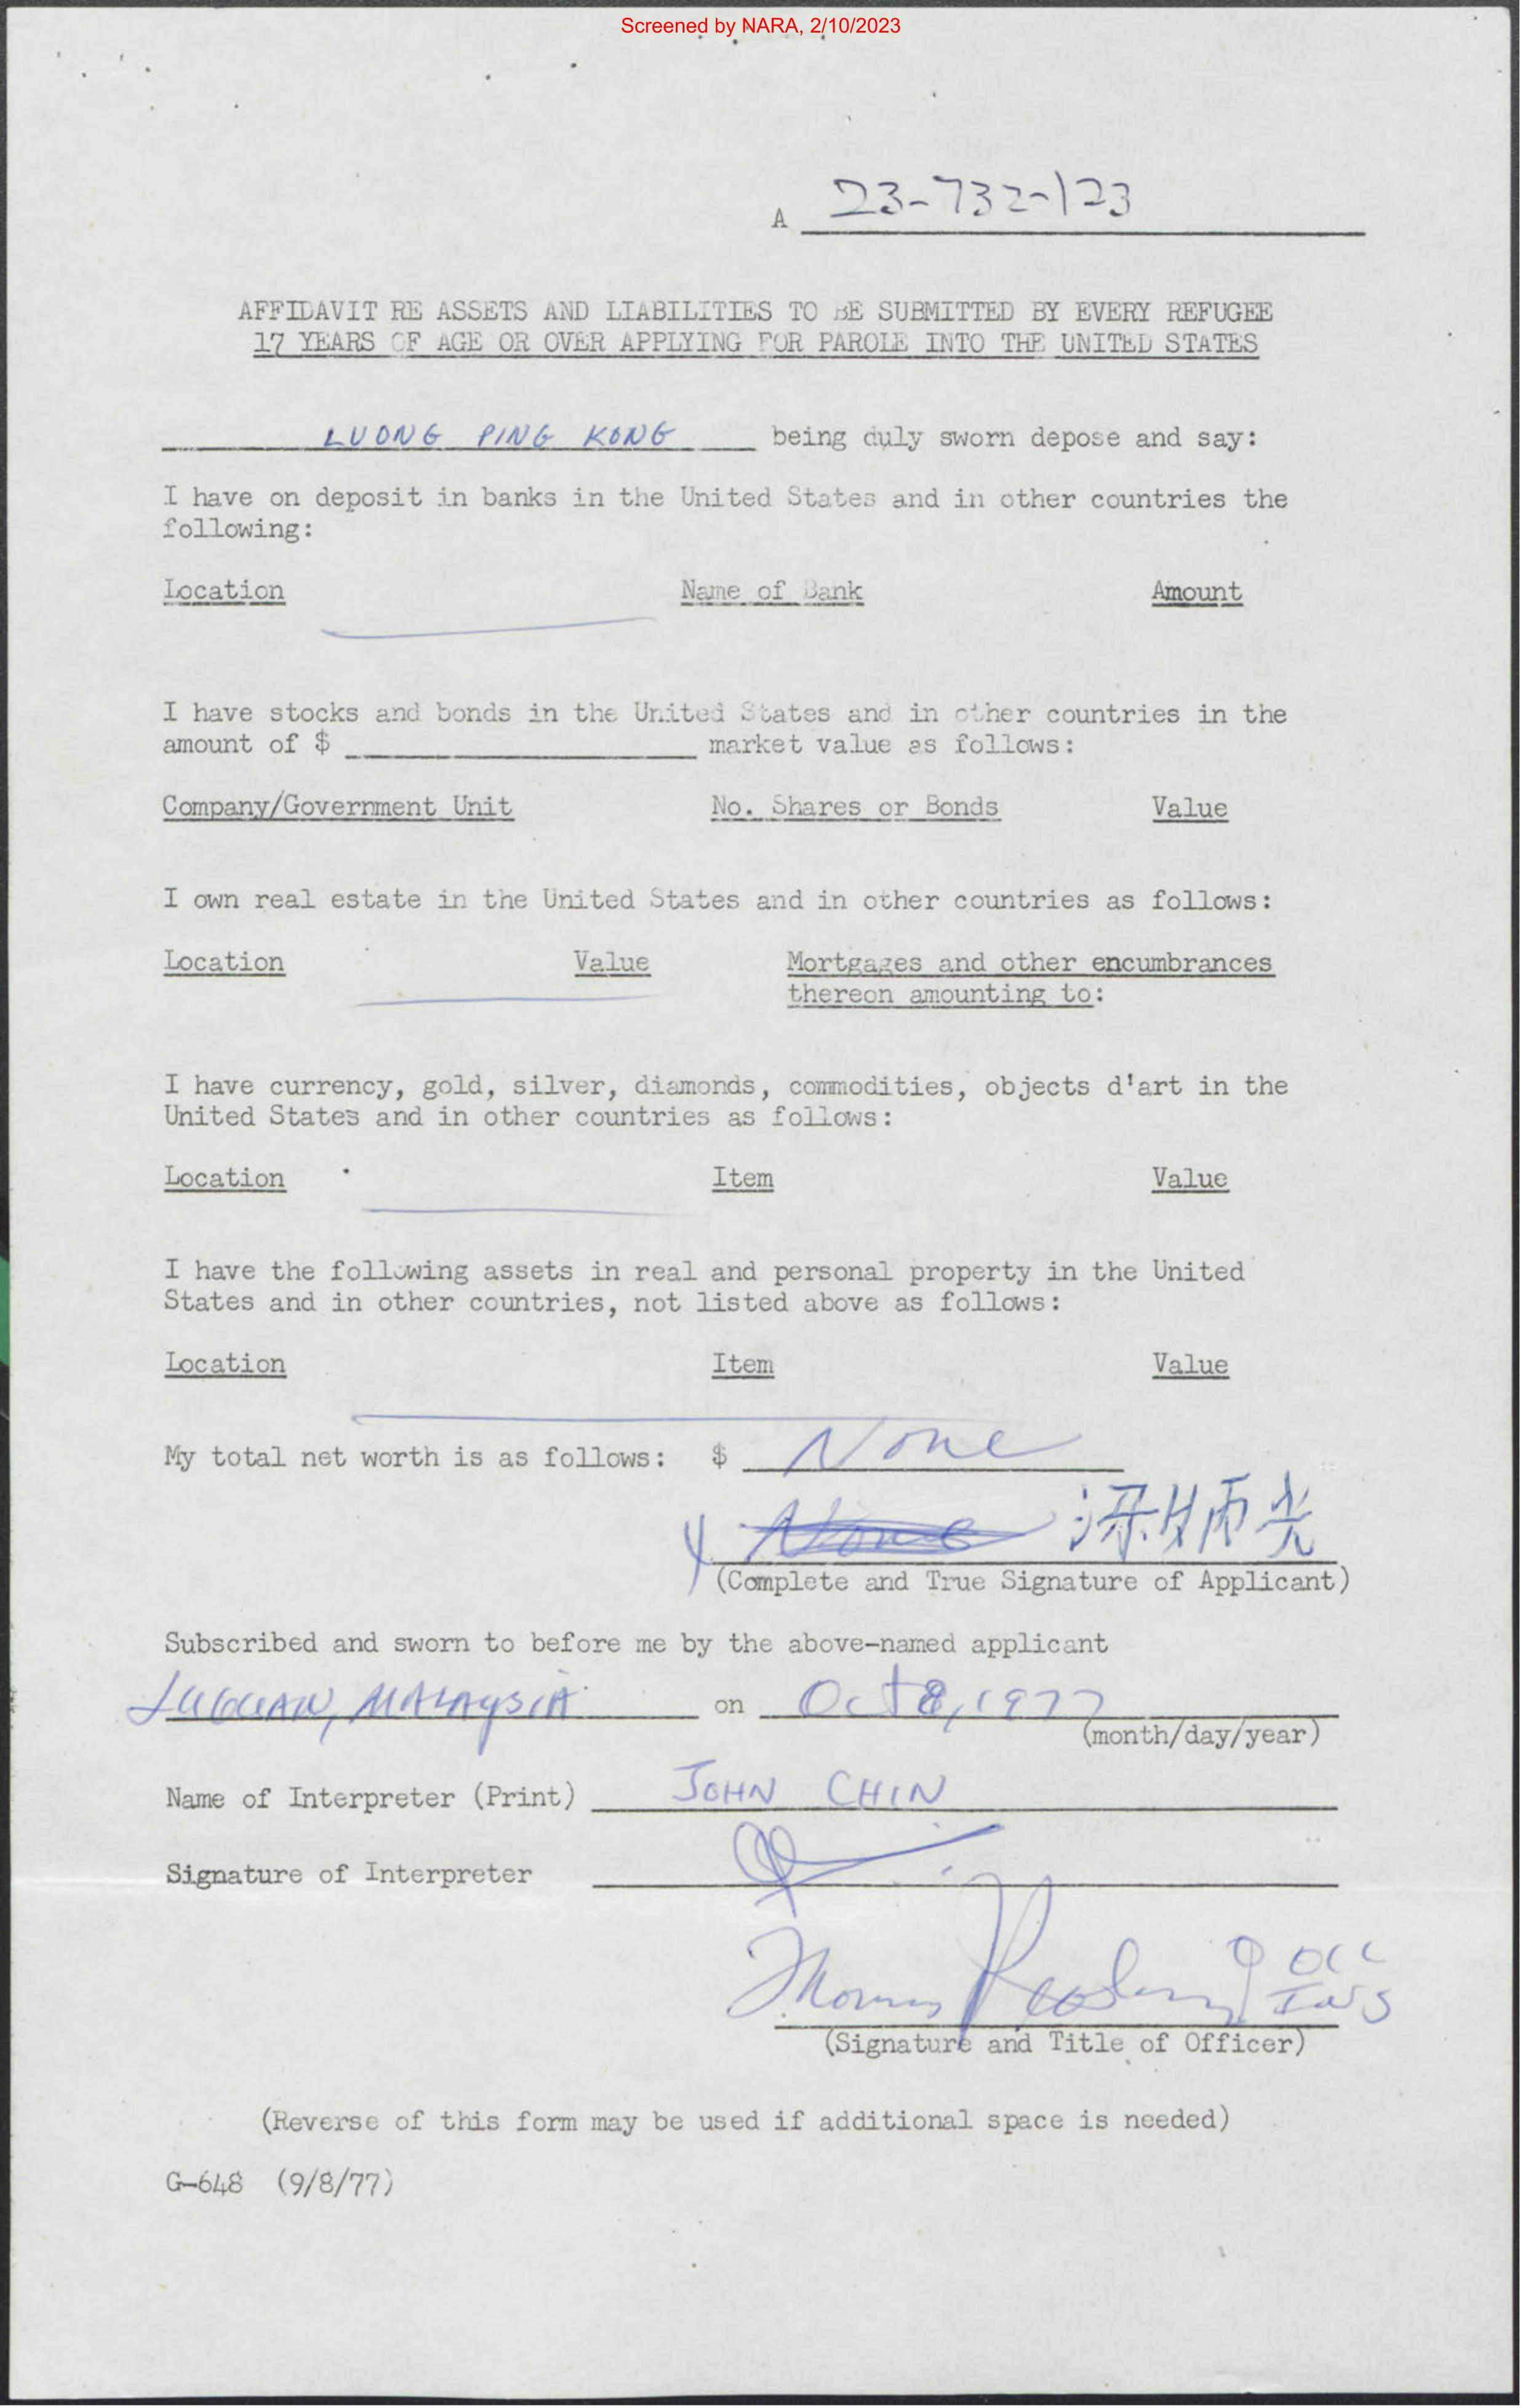 Screened by NARA, 2/10/2023
A 23-732-123
AFFIDAVIT RE ASSETS AND LIABILITIES TO BE SUBMITTED BY EVERY REFUGEE
17 YEARS OF AGE OR OVER APPLYING FOR PAROLE INTO THE UNITED STATES
LUONG PING KONG being duly sworn depose and say:
I have on deposit in banks in the United States and in other countries the
following:
Location Name of Bank Amount
I have stocks and bonds in the United States and in other countries in the
amount of $ market value as follows:
Company/Government Unit No. Shares or Bonds Value
I own real estate in the United States and in other countries as follows:
Location Value Mortgages and other encumbrances
thereon amounting to:
I have currency, gold, silver, diamonds, commodities, objects d'art in the
United States and in other countries as follows:
Location Item Value
I have the following assets in real and personal property in the United
States and in other countries, not listed above as follows:
Location Item Value
My total net worth is as follows: $ None
None
(Complete and True Signature of Applicant)
Subscribed and sworn to before me by the above-named applicant
MALAYSIA on Oct 8, 1977
(month/day/year)
Name of Interpreter (Print) JOHN CHIN
Signature of Interpreter
Thomas
INS
(Signature and Title of Officer)
(Reverse of this form may be used if additional space is needed)
G-648 (9/8/77)